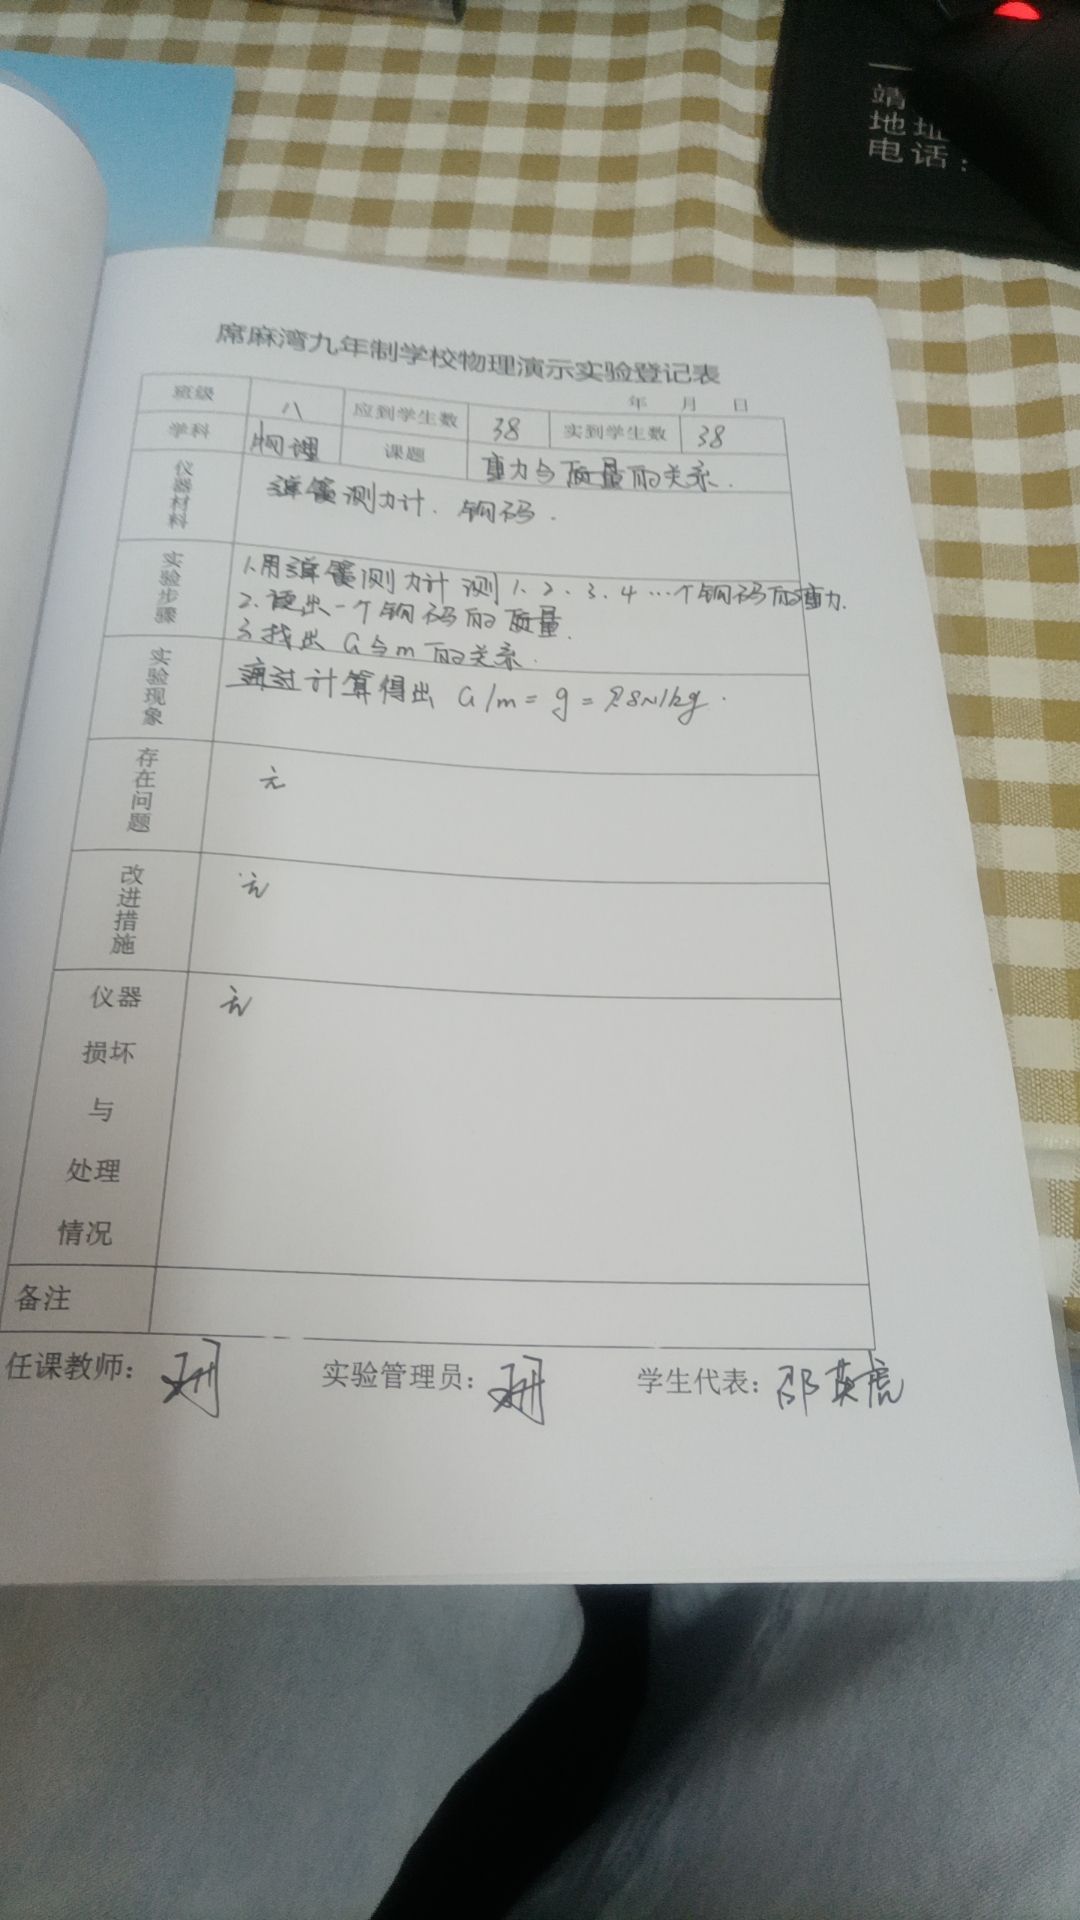 靖
地址
电话：
席麻湾九年制学校物理演示实验登记表
年 月 日
班级 八 应到学生数 38 实到学生数 38
学科 物理 课题 重力与质量的关系.
仪器材料 弹簧测力计. 钩码.
实验步骤 1.用弹簧测力计测1、2、3、4…个钩码的重力.
2.读出一个钩码的质量.
3.找出G与m的关系.
实验现象 通过计算得出 G/m=g=9.8N/kg.
存在问题 无
改进措施 无
仪器损坏与处理情况 无
备注
任课教师： 实验管理员： 学生代表：邵英虎